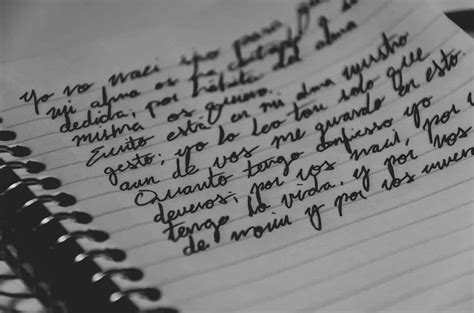 Yo no naci sino para
mi alma os ha cortado a
dedida, por hábito del alma
misma os quiero.
Escrito está en mi alma vuestro
gesto; yo lo leo tan solo que
aun de vos me guardo en esto.
Quanto tengo confieso yo
deveros; por vos naci, por
tengo la vida, y por vos
de morir y por vos muero